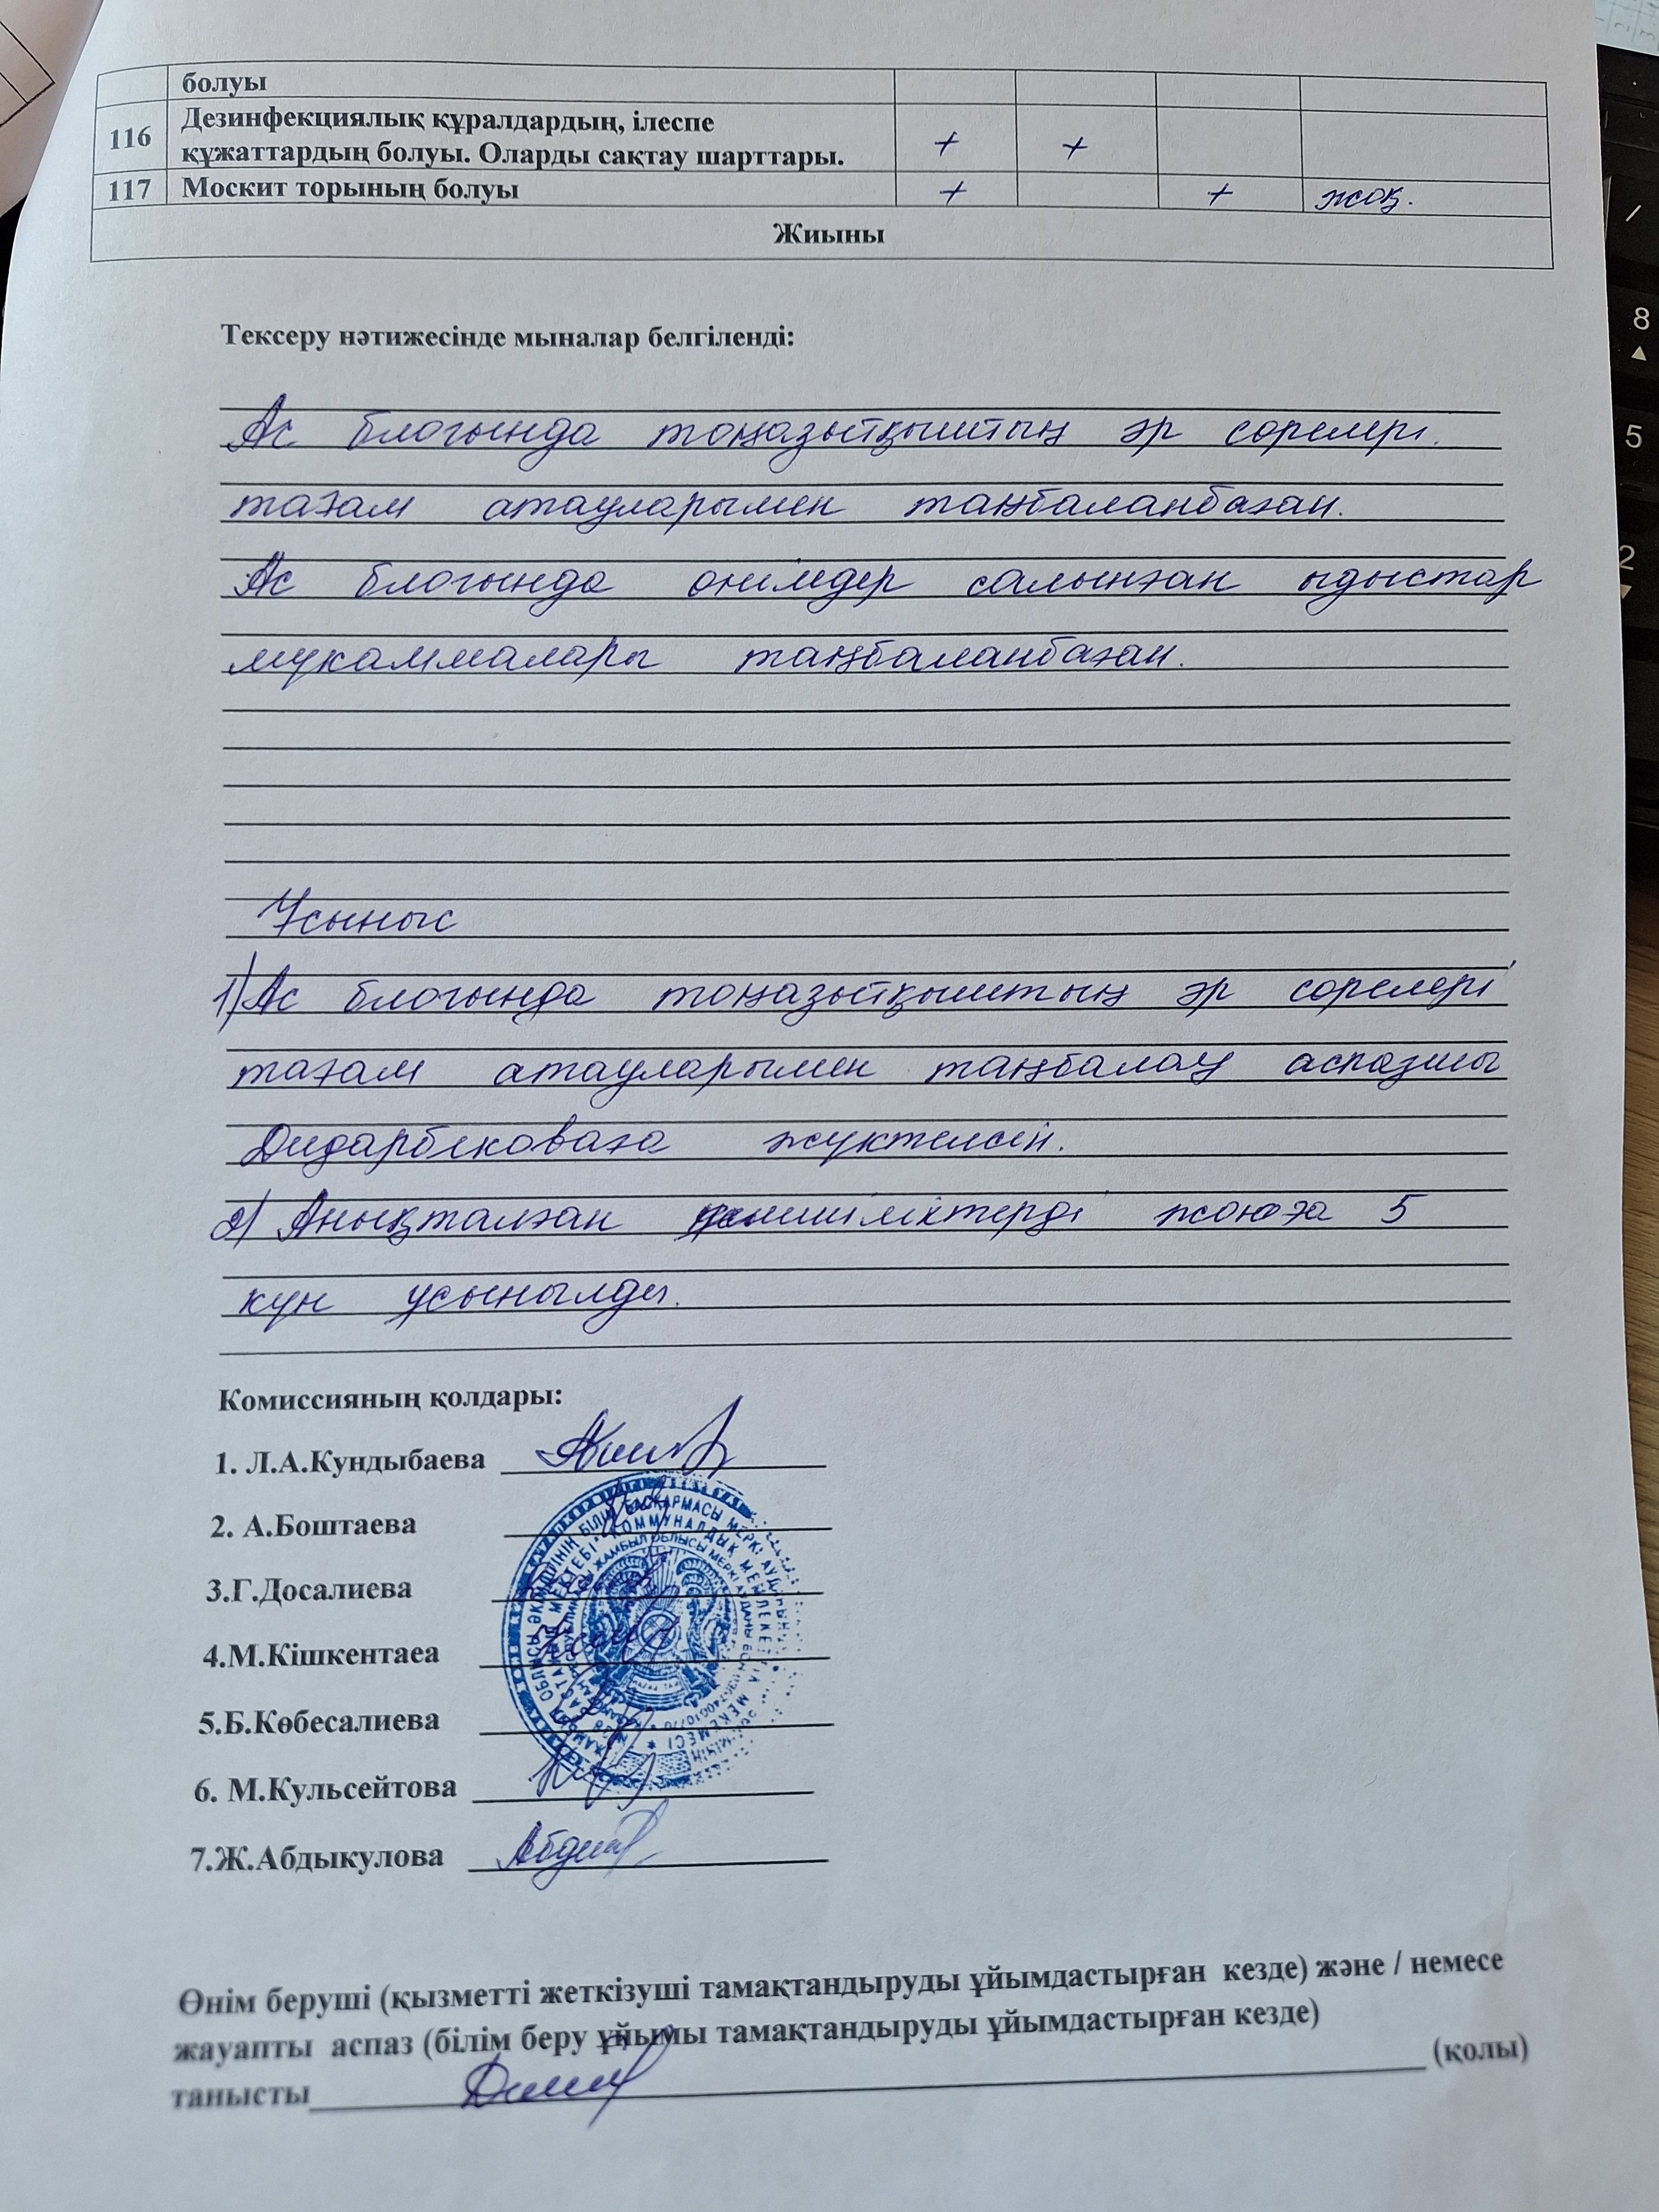 болуы
116 Дезинфекциялық құралдардың, ілеспе
құжаттардың болуы. Оларды сақтау шарттары. + +
117 Москит торының болуы + + жоқ.
Жиыны
Тексеру нәтижесінде мыналар белгіленді:
Ас блогында тоңазытқыштың әр сөрелері
тағам атауларымен таңбаланбаған.
Ас блогында өнімдер салынған ыдыстар
мукаммалары таңбаланбаған.
Ұсыныс
1) Ас блогында тоңазытқыштың әр сөрелері
тағам атауларымен таңбалау аспазшы
Дидарбековаға жүктелсін.
2) Анықталған кемшіліктерді жоюға 5
күн ұсынылды.
Комиссияның қолдары:
1. Л.А.Кундыбаева
2. А.Боштаева
3.Г.Досалиева
4.М.Кішкентаеа
5.Б.Көбесалиева
6. М.Кульсейтова
7.Ж.Абдыкулова
Өнім беруші (қызметті жеткізуші тамақтандыруды ұйымдастырған кезде) және / немесе
жауапты аспаз (білім беру ұйымы тамақтандыруды ұйымдастырған кезде)
танысты (қолы)
8
5
2